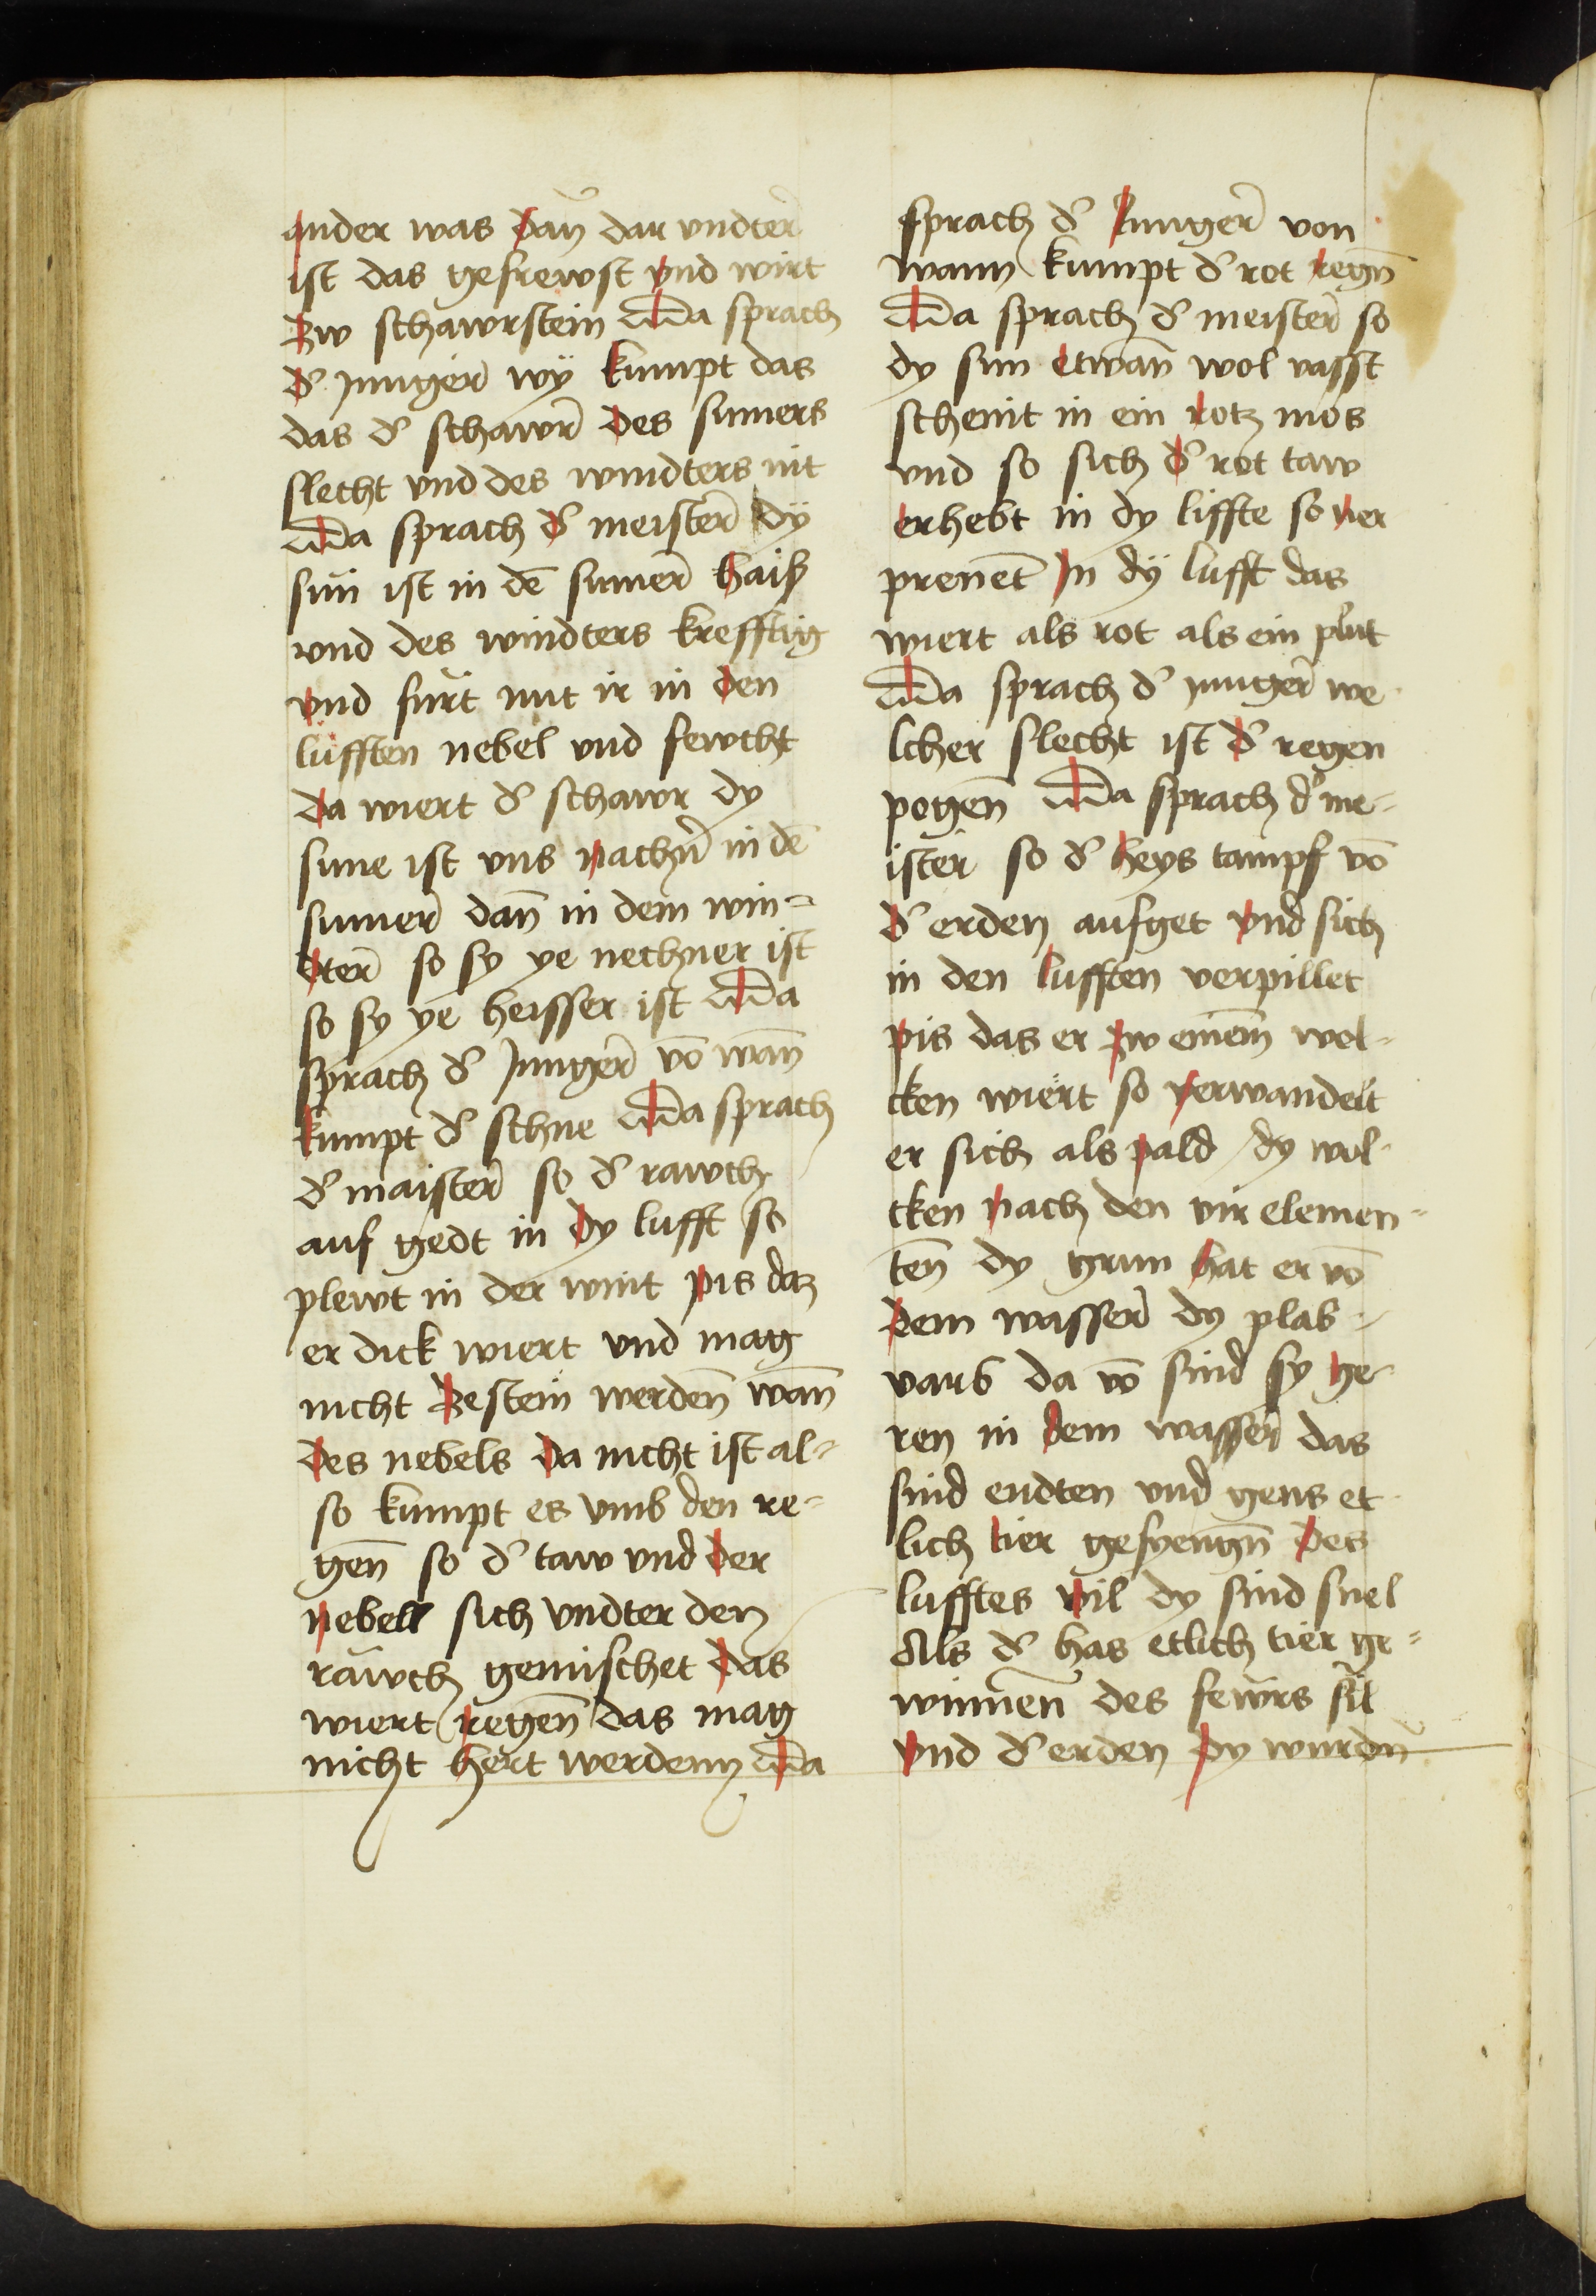 ander was dan̄ dar vndter̄
ist das gefrewst vnd wirt
zw schawrstein Da sprach
d' junger̄ wÿ kumpt das
das d' schawr̄ des sumers
slecht vnd des windters nit
Da sprach d' meister̄ dÿ
sun ist in dē sumer̄ haiß
vnd des windters krefftig
vnd furt mit ir in den
lüfften nebel vnd fewcht
da wiert d' schawr dy
sune ist vns nachn̄ in dē
sumer̄ dan̄ in dem win=
dter̄ so sy ye nechner ist
so sy ye heisser ist Da
sprach d' Junger̄ vō wan̄
kumpt d' schne Da sprach
d' maister̄ so d' rawch
auf gedt in dy lufft so
plewt in der wint pis daz
er dick wiert vnd mag
nicht zestein werden̄ wan̄
des nebels da nicht ist al=
so kumpt es vmb den re=
gen̄ so d' taw vnd der
nebell sich vndter den
rawch gemischet das
wiert regen̄ das mag
nicht hert werdenn Da
sprach d' Junger̄ von
wann kumpt d' rot regn̄
Da sprach d' meister̄ so
dy sun etwan̄ wol vasst
scheint in ein rotz mos
vnd so sich d' rot taw
erhebt in dy liffte so ver
prennet In dÿ lufft das
wiert als rot als ein plut
Da sprach d' junger̄ we
lcher slecht ist d' regen
pogen̄ Da sprach d' me=
ister so d' heys tampf vō
d' erden aufget vnd sich
in den lufften verpillet
pis das er zw einem wol-
cken wiert so verwandelt
er sich als pald dy wol-
cken nach den vir elemen=
ten̄ dy grun hat er vō
dem wasser̄ dy plab
varb da vō sind sy ge-
ren in dem wasser̄ das
sind endten vnd gens et
lich tier gesyengn̄ des
lufftes vil dy sind snel
Als d' has etlich tier ge=
winnen̄ des fewrs sil
vnd d' erden dy wurdn̄